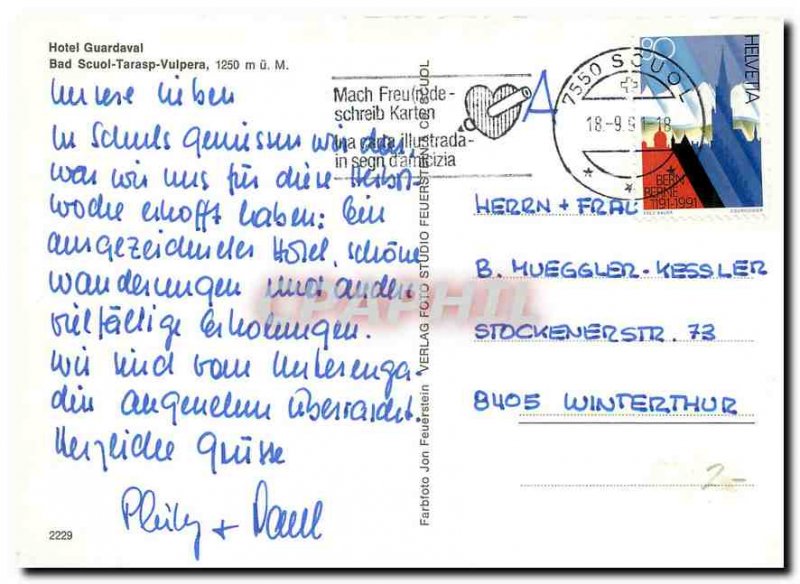 Hotel Guardaval
Bad Scuol-Tarasp-Vulpera, 1250 m ü. M.
Unsere Lieben
In Schuls geniessen wir das,
was wir uns für diese Herbst-
woche erhofft haben: Ein
ausgezeichnetes Hotel, schöne
Wanderungen und andere
vielfältige Erholungen.
Wir sind vom Unterenga-
din angenehm überrascht.
Herzliche Grüsse
+
2229
Farbfoto Jon Feuerstein VERLAG FOTO STUDIO FEUERSTEIN SCUOL
Mach Freu(n)de-
schreib Karten
Ina carta illustrada-
in segn d'amicizia
A
7550 SCUOL
18-9.91-18
80
HELVETIA
BERN
BERNE
1191-1991
HERRN + FRAU
B. MUEGGLER-KESSLER
STOCKENERSTR. 73
8405 WINTERTHUR
2.-
CPAPHIL